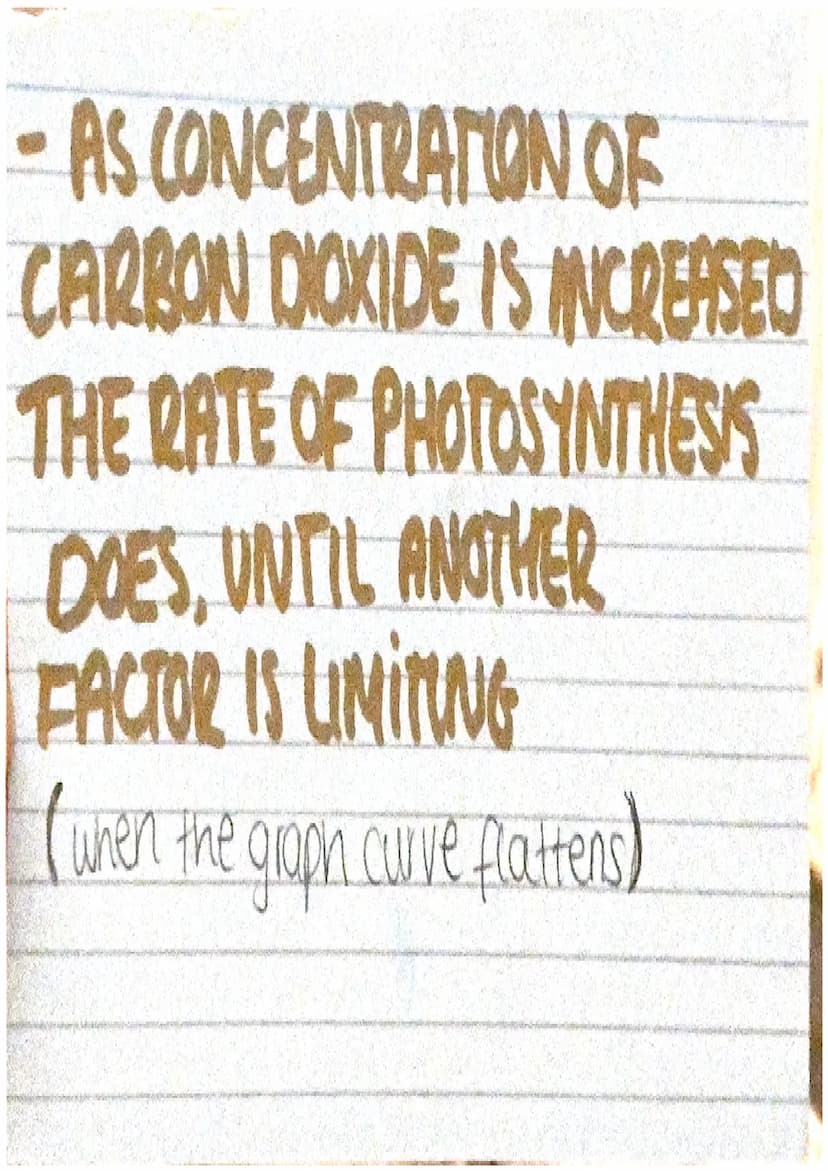 - AS CONCENTRATION OF
CARBON DIOXIDE IS INCREASED
THE RATE OF PHOTOSYNTHESIS
DOES, UNTIL ANOTHER
FACTOR IS LIMiTING
(when the graph curve flattens)